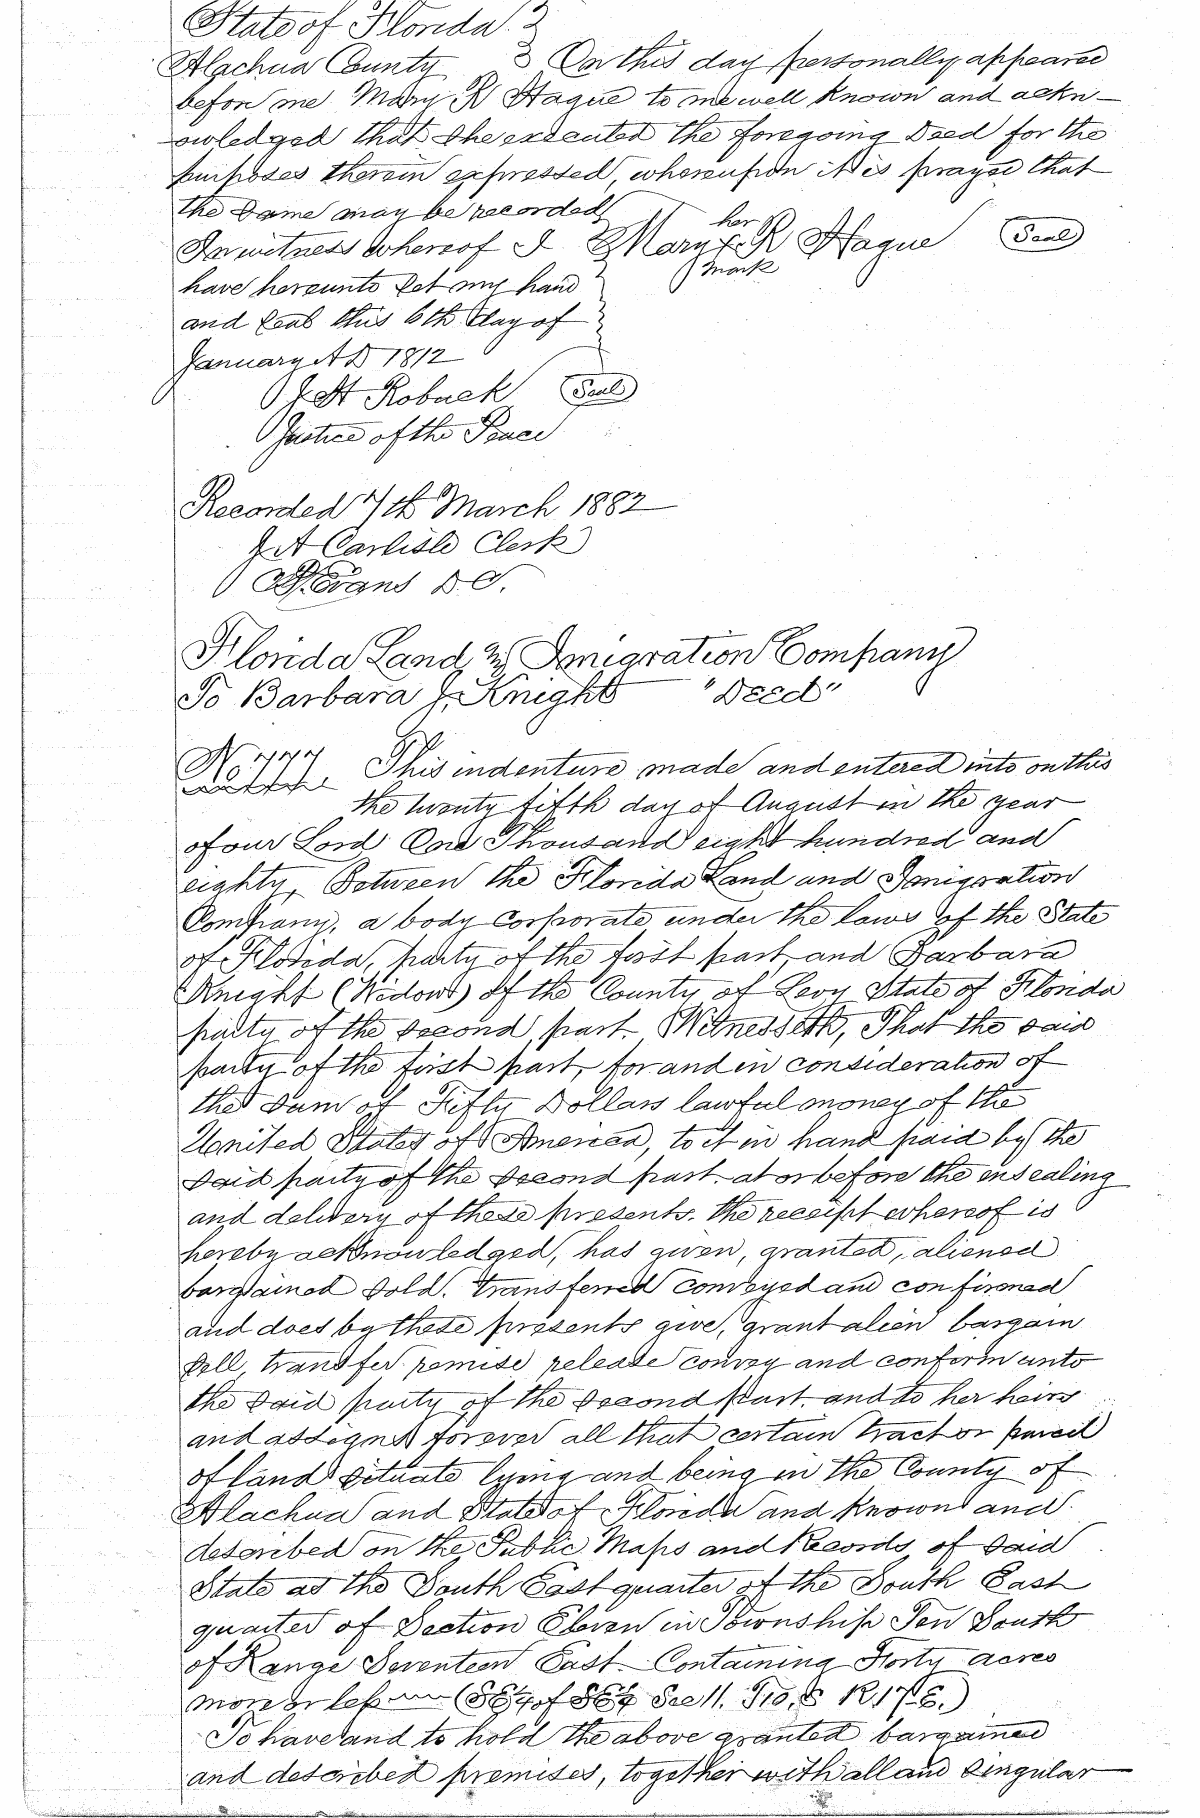 State of Florida }
Alachua County } On this day personally appeared
before me Mary R Hague to me well known and ackn-
owledged that she executed the foregoing Deed for the
purposes therein expressed, whereupon it is prayed that
the same may be recorded
In witness whereof I Mary her x mark R Hague (Seal)
have hereunto set my hand
and seal this 6th day of
January A D 1812
J H Robuck (Seal)
Justice of the Peace
Recorded 7th March 1882
J A Carlisle Clerk
Evans D C.
Florida Land & Imigration Company
To Barbara J. Knight "Deed"
No 777. This indenture made and entered into on this
the twenty fifth day of August in the year
of our Lord One Thousand eight hundred and
eighty, Between the Florida Land and Imigration
Company, a body Corporate under the laws of the State
of Florida, party of the first part, and Barbara
Knight (Widow) of the County of Levy State of Florida
party of the second part. Witnesseth, That the said
party of the first part, for and in consideration of
the sum of Fifty Dollars lawful money of the
United States of America, to it in hand paid by the
said party of the second part. at or before the ensealing
and delivery of these presents. the receipt whereof is
hereby acknowledged, has given, granted, aliened
bargained sold. transferred conveyed and confirmed
and does by these presents give, grant alien bargain
sell, transfer remise release convey and conform unto
the said party of the second part. and to her heirs
and assigns forever all that certain tract or parcel
of land situate lying and being in the County of
Alachua and State of Florida and known and
described on the Public Maps and Records of said
State as the South East quarter of the South East
quarter of Section Eleven in Township Ten South
of Range Seventeen East. Containing Forty acres
more or less (SE¼ of SE¼ Sec 11. T10. S R.17 E.)
To have and to hold the above granted bargained
and described premises, together with all and singular